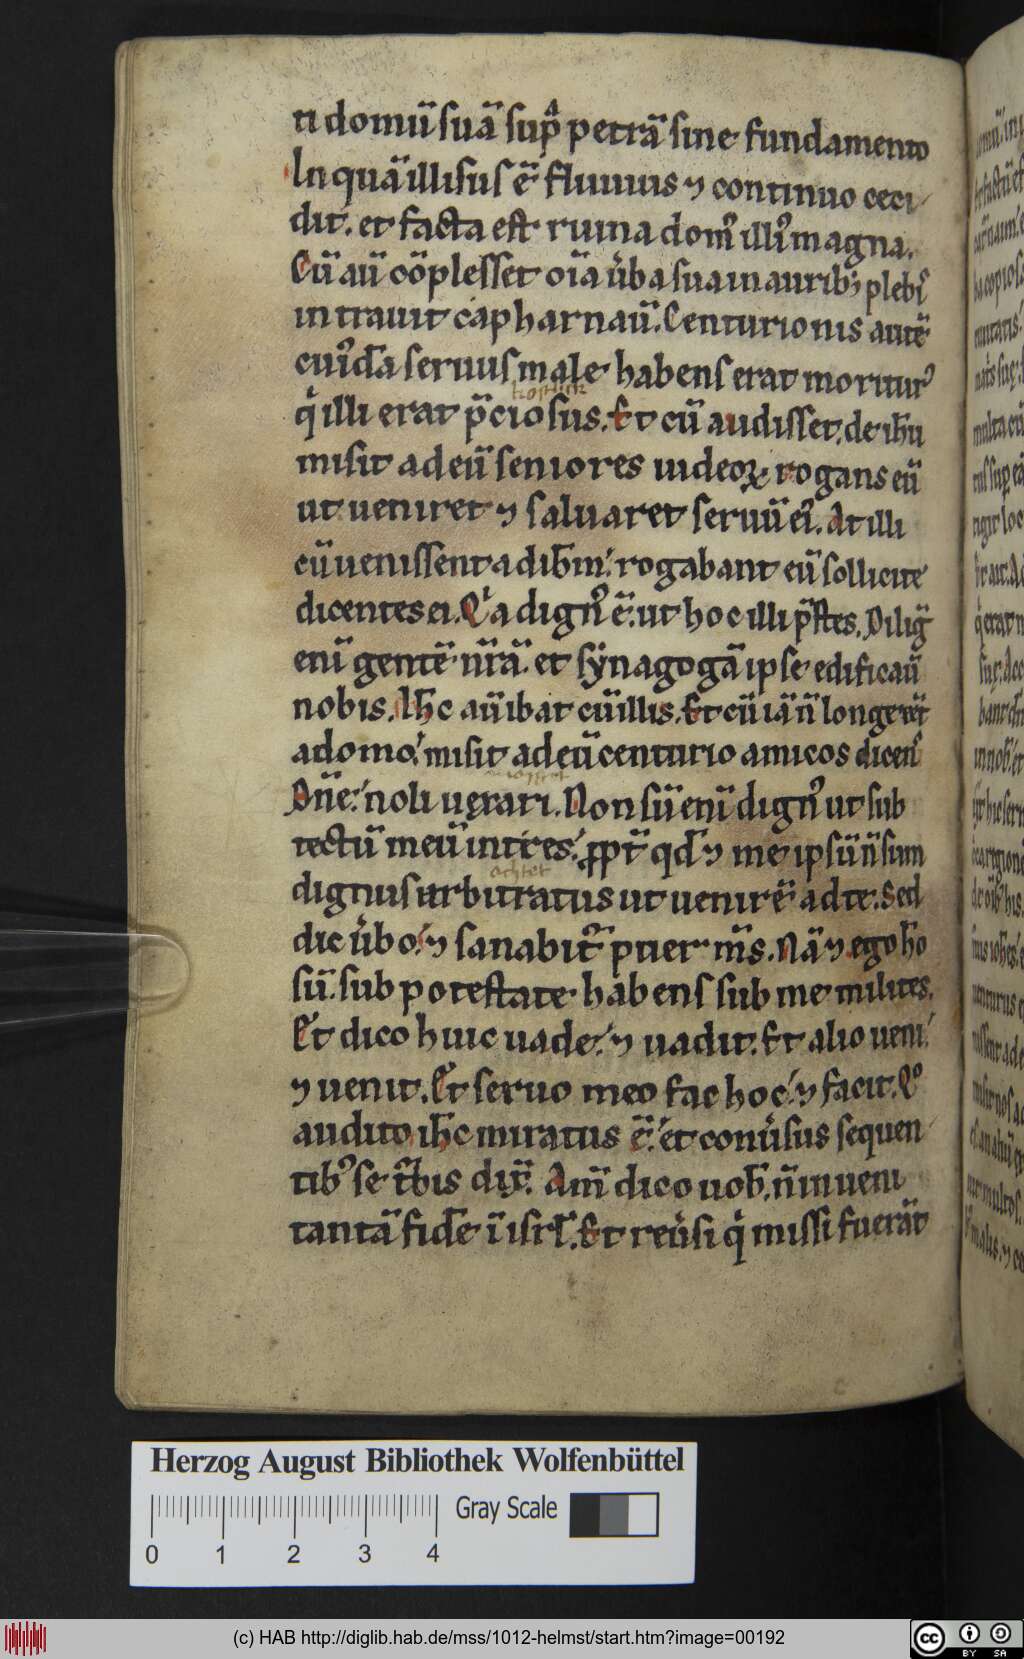 ti domū suā sup̄ petrā sine fundamento
In quā illisus ē fluuius ⁊ continuo ceci
dit. et facta est ruina domꝰ illiꝰ magna.
Cū aū cōplesset oīa ūba sua in auribꝫ plebis
intrauit capharnaū. Centurionis autē
cuiꝰdā seruus male habens erat moriturꝰ
kostlich
q̇ illi erat p̄ciosus. Et cū audisset de ih̄u
misit ad eū seniores iudeoꝝ rogans eū
ut ueniret ⁊ saluaret seruū eiꝰ. At illi
cū uenissent ad ih̄m. rogabant eū sollicite
dicentes ei. Qͥa dignꝰ ē. ut hoc illi p̄stes. Diliḡ
enī gentē nr̄ā. et synagogā ipse edificau̅
nobis. Ih̄c aū ibat cū illis. Et cū iā n̄ longe eēt
a domo. misit ad eū centurio amicos dicens
Dn̄e. noli uexari. Non sū enī dignꝰ ut sub
tectū meū intres. ꝓpt̄ qd̄ ⁊ me ipsū n̄ sum
achtet
dignus arbitratus ut uenirē ad te. Sed
dic ūbo. ⁊ sanabit̄ puer m̄s. Nā ⁊ ego ho
sū. sub potestate habens sub me milites.
Et dico huic uade. ⁊ uadit. Et alio ueni.
⁊ uenit. Et seruo meo fac hoc. ⁊ facit. Qͦ
audito ih̄c miratus ē. et conūsus sequen
tibꝰ se t̄bis dix̄. Am̄ dico uob̄. n̄ inueni
tantā fidē ī isrl̄. Et reūsi q̇ missi fuerāt
Herzog August Bibliothek Wolfenbüttel
Gray Scale
0 1 2 3 4
(c) HAB http://diglib.hab.de/mss/1012-helmst/start.htm?image=00192
cc BY SA